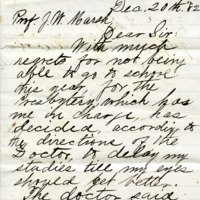 Dec. 20th. 82
Prof. J. W. Marsh
Dear Sir:
With much
regrets for not being
able to go to school
this year for the
Presbytery, which has
me in charge, has
decided, according to
the directions of the
Doctor to delay my
studies till my eyes
should get better.
The doctor said